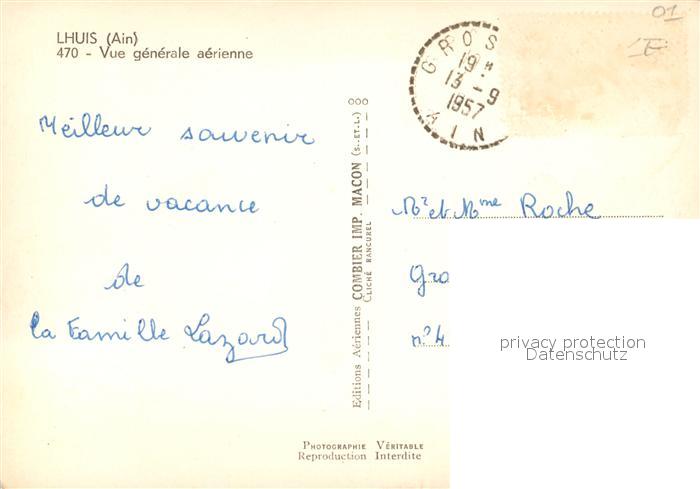 LHUIS (Ain)
470 - Vue générale aérienne
01
GROS
19 H
13 - 9
1957
AIN
Meilleur souvenir
de vacance
de
la famille Lazard
Editions Aériennes COMBIER IMP. MACON (S.-ET-L.)
CLICHÉ RANCUREL
Mr et Mme Roche
Gro
n° 4
privacy protection
Datenschutz
PHOTOGRAPHIE VÉRITABLE
Reproduction Interdite